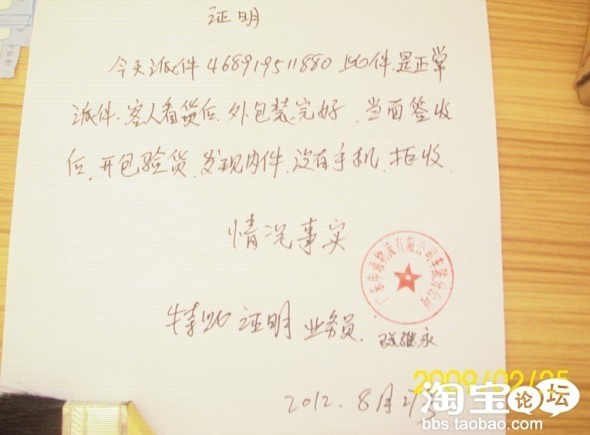 证明
今天派件 468919511880 此件是正常
派件.客人看货后.外包装完好.当面签收
后.开包验货.发现内件.没有手机.拒收.
情况事实
广东中通物流有限公司
特此证明 业务员.
2009/02/25
2012.8月
淘宝论坛
bbs.taobao.com